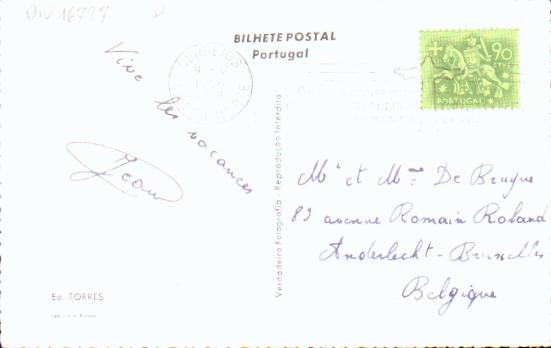 DIV 16727
BILHETE POSTAL
Portugal
90
CTVS
PORTUGAL
Vive les vacances
Jean
Mr et Mme De Bruyne
89 avenue Romain Roland
Anderlecht - Bruxelles
Belgique
Verdadeira Fotografia - Reprodução Interdita
Ed. TORRES